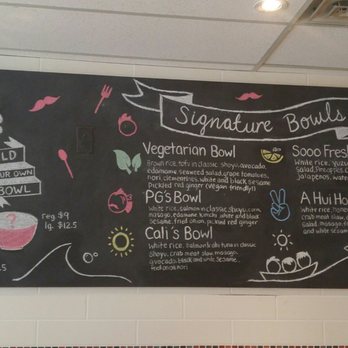 Signature Bowls
LD
OUR OWN
BOWL
reg $9
lg. $12.5
Vegetarian Bowl
Brown rice, tofu in classic Shoyu, avocado,
edamame, seaweed salad, grape tomatoes,
nori, clementines, white and black sesame
pickled red ginger (vegan friendly!)
PG's Bowl
white rice, salmon in classic shoyu, corn,
masago, edamame, kimchi, white and black
sesame, fried onion, and red ginger
Cali's Bowl
White rice, salmon & ahi tuna in classic
Shoyu, crab meat slaw, masago,
avocado, black and white sesame,
fried onion
Sooo Fresh
White rice,
Salad,
Jalapenos, wa
A Hui Ho
White rice,
crab meat slaw,
salad, masago,
and white sesame